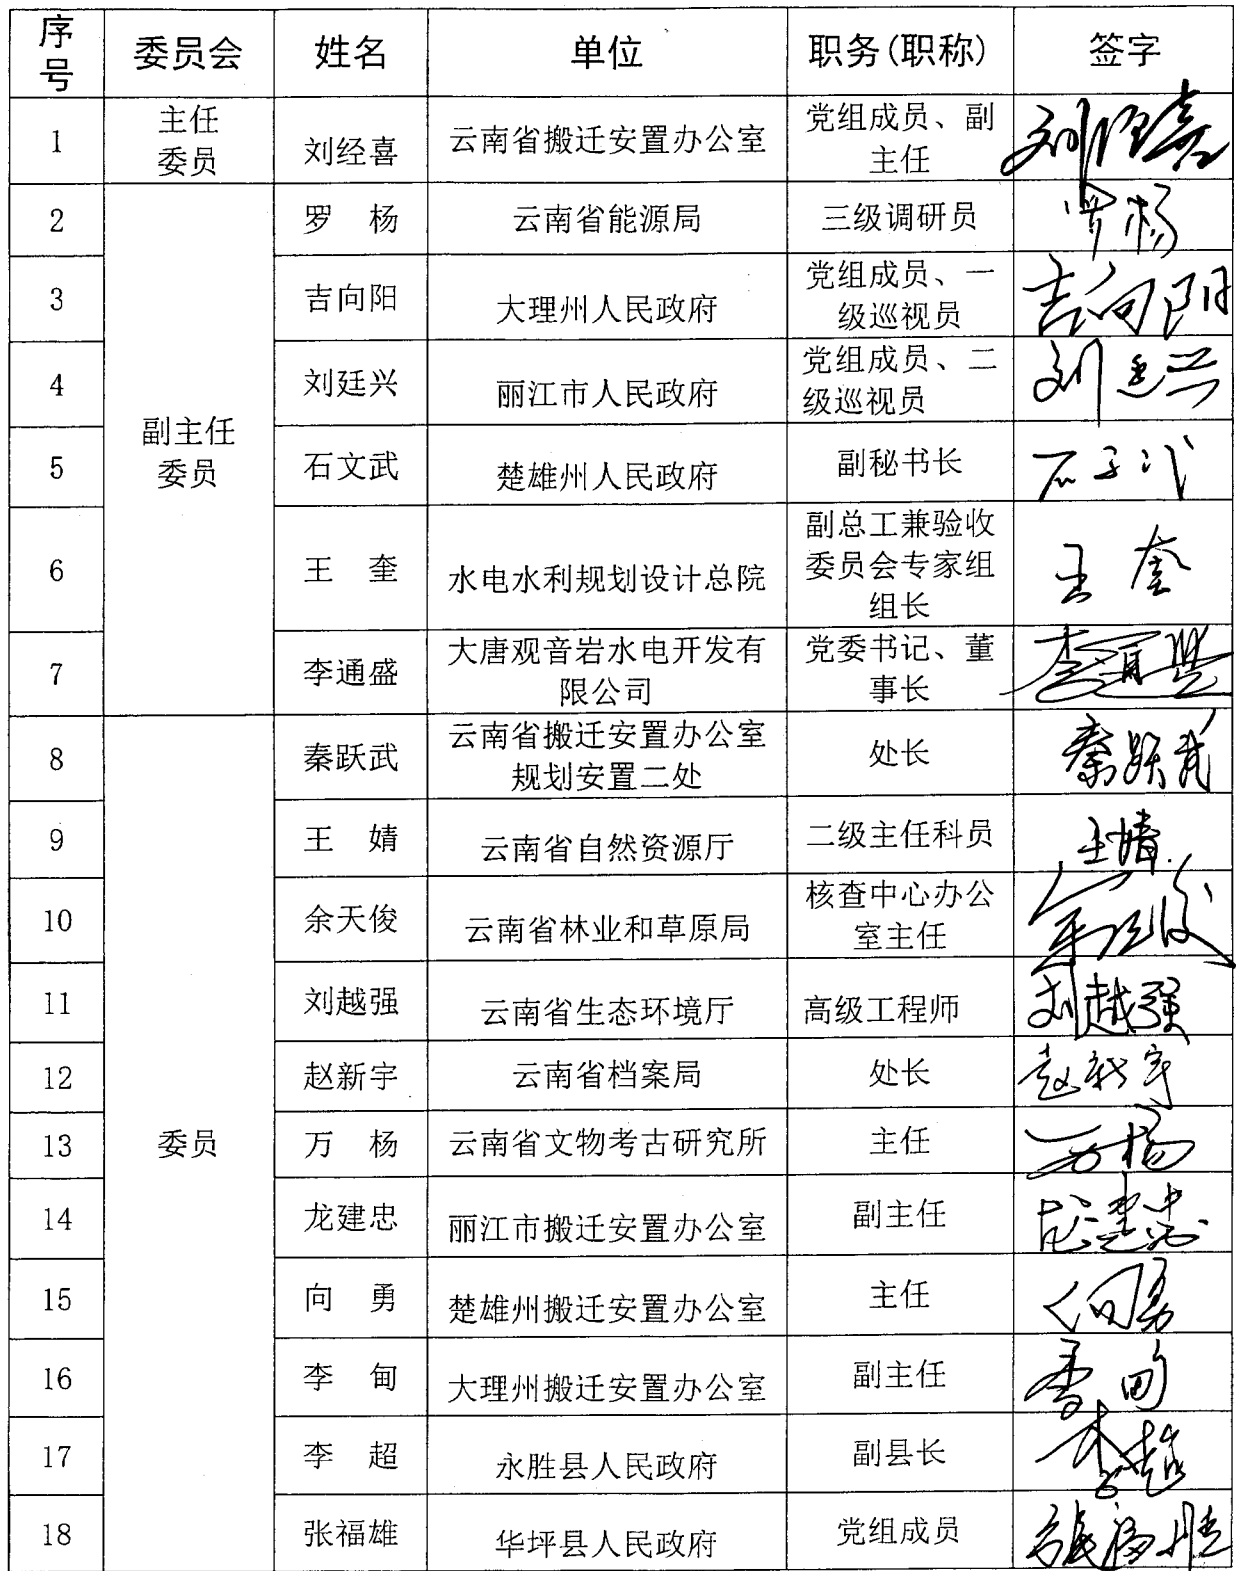 序号 委员会 姓名 单位 职务(职称) 签字
1 主任委员 刘经喜 云南省搬迁安置办公室 党组成员、副主任 刘经喜
2 副主任委员 罗 杨 云南省能源局 三级调研员 罗杨
3 吉向阳 大理州人民政府 党组成员、一级巡视员 吉向阳
4 刘廷兴 丽江市人民政府 党组成员、二级巡视员 刘廷兴
5 石文武 楚雄州人民政府 副秘书长
6 王 奎 水电水利规划设计总院 副总工兼验收委员会专家组组长 王奎
7 李通盛 大唐观音岩水电开发有限公司 党委书记、董事长
8 委员 秦跃武 云南省搬迁安置办公室规划安置二处 处长 秦跃武
9 王 婧 云南省自然资源厅 二级主任科员 王婧
10 余天俊 云南省林业和草原局 核查中心办公室主任
11 刘越强 云南省生态环境厅 高级工程师 刘越强
12 赵新宇 云南省档案局 处长 赵新宇
13 万 杨 云南省文物考古研究所 主任 万杨
14 龙建忠 丽江市搬迁安置办公室 副主任 龙建忠
15 向 勇 楚雄州搬迁安置办公室 主任 向勇
16 李 甸 大理州搬迁安置办公室 副主任 李甸
17 李 超 永胜县人民政府 副县长 李超
18 张福雄 华坪县人民政府 党组成员